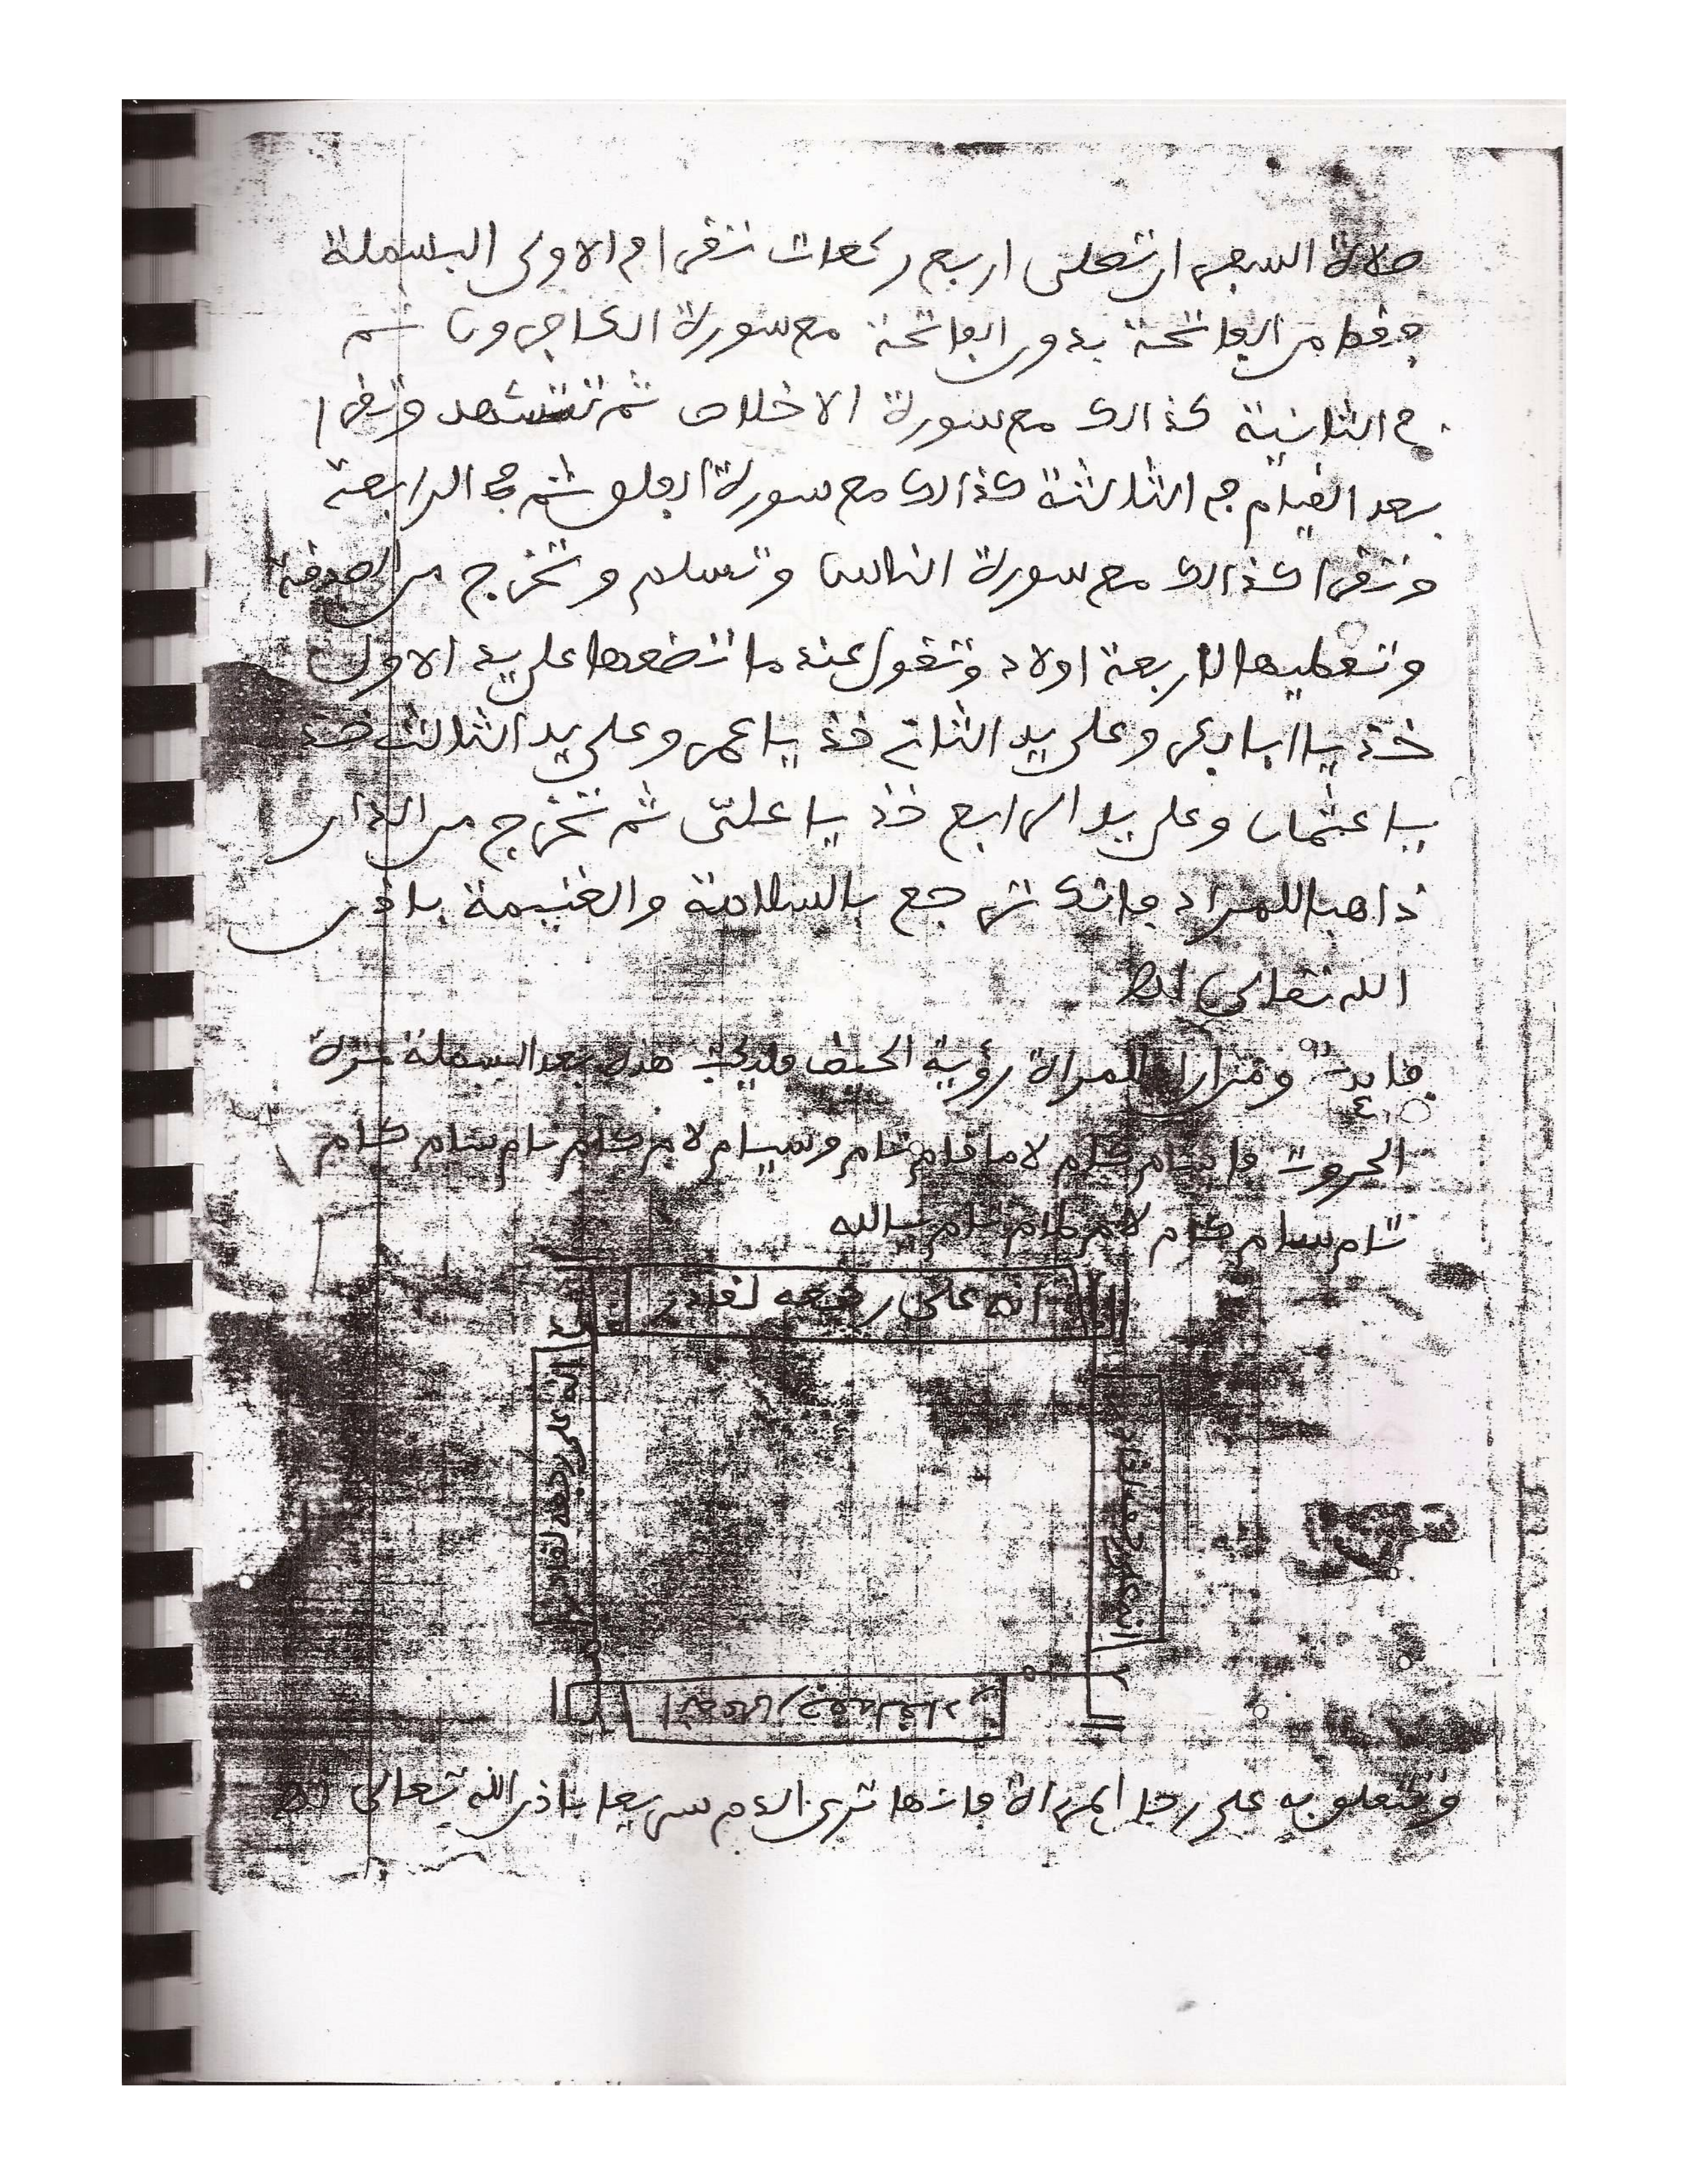 صلاة السفر ان تصلى اربع ركعات تقرا في الاولى البسملة
فقط من الفاتحة بدون الفاتحة مع سورة الكافرون ثم
في الثانية كذالك مع سورة الاخلاص ثم تتشهد وتقرا
بعد القيام في الثالثة كذالك مع سورة الفلق ثم في الرابعة
وتقرا كذالك مع سورة الناس وتسلم وتخرج من الصدقة
وتعطيها لاربعة اولاد وتقول عند ما تضعها على يد الاول
خذ يا ابا بكر وعلى يد الثاني خذ يا عمر وعلى يد الثالث خذ
يا عثمان وعلى يد الرابع خذ يا علي ثم تخرج من الدار
ذاهبا للمراد فانك ترجع بالسلامة والغنيمة باذن
الله تعالى اهـ
فايدة ومن اراد للمراة رؤية الحيض فليكتب هذه بعد البسملة
الحروف
يا الله
انه على رجعه لقادر
انه على رجعه لقادر
انه على رجعه لقادر
انه على رجعه لقادر
وتعلق به على رجل المراة فانها ترى الدم سريعا باذن الله تعالى اهـ